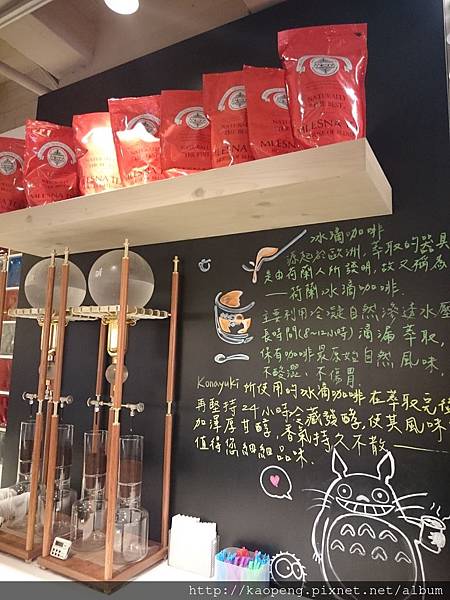 NATURALLY
THE BEST
MLESNA TEA
NATURALLY
THE BEST
MLESNA TEA
HOUSE OF BLEND
冰滴咖啡
源起於歐洲,萃取的器具
是由荷蘭人所發明,故又稱為
荷蘭冰滴咖啡.
主要利用冷凝自然滲透水壓
長時間(8~12小時)滴漏萃取,
保有咖啡最原始自然風味,
不酸澀、不傷胃.
Konayuki所使用的冰滴咖啡在萃取完後
再堅持24小時冷藏發酵,使其風味
加渾厚甘醇,香氣持久不散——
值得您細細品味.
http://kaopeng.pixnet.net/album